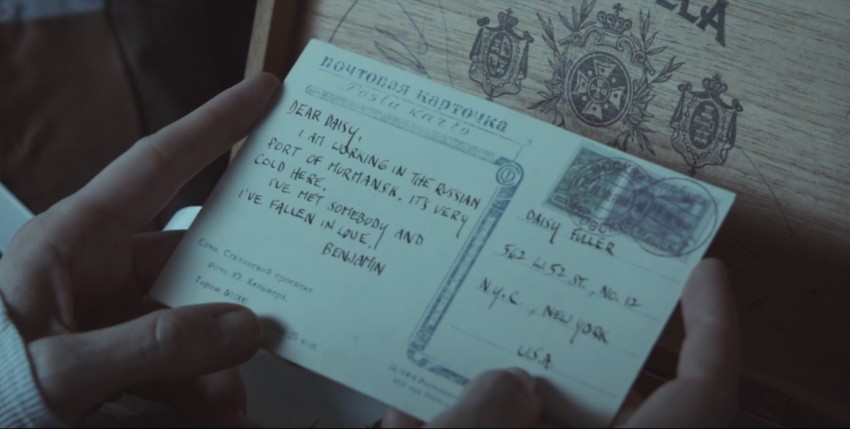 ELLA
ПОЧТОВАЯ КАРТОЧКА
DEAR DAISY,
I AM WORKING IN THE RUSSIAN
PORT OF MURMANSK. IT'S VERY
COLD HERE.
I'VE MET SOMEBODY AND
I'VE FALLEN IN LOVE.
BENJAMIN
Сочи. Сталинский проспект.
Фото Ю.
Тираж
DAISY FULLER
562 W. 52 ST., NO. 12
N.Y.C., NEW YORK
U.S.A